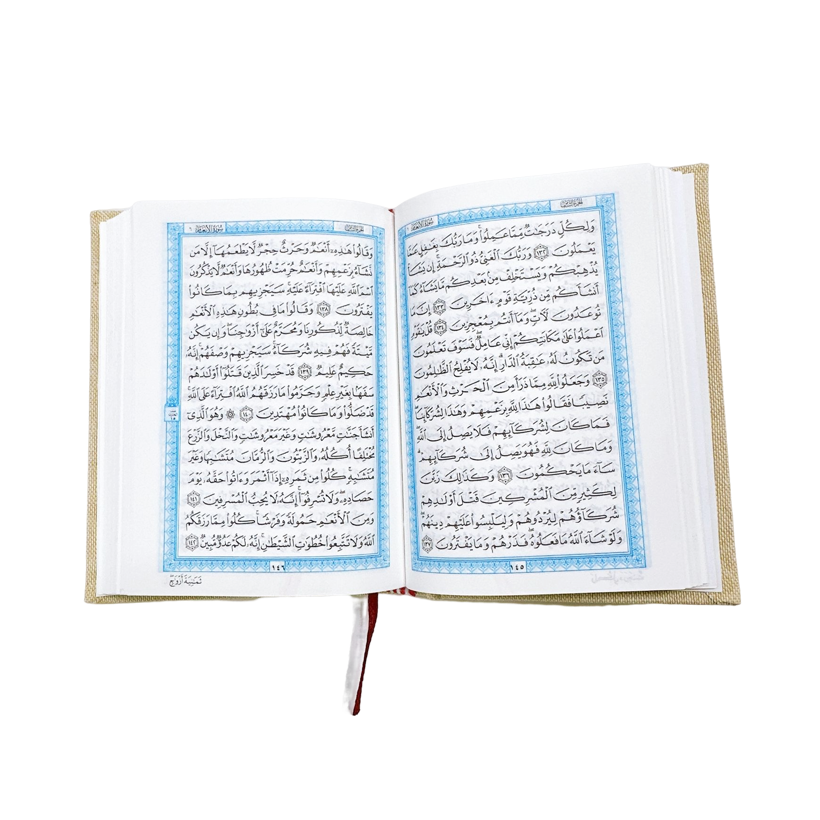 الجزء الثامن
سورة الأنعام
وَلِكُلٍّ دَرَجَٰتٌ مِّمَّا عَمِلُوا۟ وَمَا رَبُّكَ بِغَٰفِلٍ عَمَّا
يَعْمَلُونَ ١٣٢ وَرَبُّكَ الْغَنِيُّ ذُو الرَّحْمَةِ إِن يَشَأْ
يُذْهِبْكُمْ وَيَسْتَخْلِفْ مِنۢ بَعْدِكُم مَّا يَشَآءُ كَمَآ
أَنشَأَكُم مِّن ذُرِّيَّةِ قَوْمٍ ءَاخَرِينَ ١٣٣ إِنَّ مَا
تُوعَدُونَ لَءَاتٍ وَمَآ أَنتُم بِمُعْجِزِينَ ١٣٤ قُلْ يَٰقَوْمِ
اعْمَلُوا۟ عَلَىٰ مَكَانَتِكُمْ إِنِّي عَامِلٌ فَسَوْفَ تَعْلَمُونَ
مَن تَكُونُ لَهُۥ عَٰقِبَةُ الدَّارِ إِنَّهُۥ لَا يُفْلِحُ الظَّٰلِمُونَ
١٣٥ وَجَعَلُوا۟ لِلَّهِ مِمَّا ذَرَأَ مِنَ الْحَرْثِ وَالْأَنْعَٰمِ
نَصِيبًا فَقَالُوا۟ هَٰذَا لِلَّهِ بِزَعْمِهِمْ وَهَٰذَا لِشُرَكَآئِنَا
فَمَا كَانَ لِشُرَكَآئِهِمْ فَلَا يَصِلُ إِلَى اللَّهِ
وَمَا كَانَ لِلَّهِ فَهُوَ يَصِلُ إِلَىٰ شُرَكَآئِهِمْ
سَآءَ مَا يَحْكُمُونَ ١٣٦ وَكَذَٰلِكَ زَيَّنَ
لِكَثِيرٍ مِّنَ الْمُشْرِكِينَ قَتْلَ أَوْلَٰدِهِمْ
شُرَكَآؤُهُمْ لِيُرْدُوهُمْ وَلِيَلْبِسُوا۟ عَلَيْهِمْ دِينَهُمْ
وَلَوْ شَآءَ اللَّهُ مَا فَعَلُوهُ فَذَرْهُمْ وَمَا يَفْتَرُونَ ١٣٧
١٤٥
الجزء الثامن
سورة الأنعام ٦
وَقَالُوا۟ هَٰذِهِۦٓ أَنْعَٰمٌ وَحَرْثٌ حِجْرٌ لَّا يَطْعَمُهَآ إِلَّا مَن
نَّشَآءُ بِزَعْمِهِمْ وَأَنْعَٰمٌ حُرِّمَتْ ظُهُورُهَا وَأَنْعَٰمٌ لَّا يَذْكُرُونَ
اسْمَ اللَّهِ عَلَيْهَا افْتِرَآءً عَلَيْهِ سَيَجْزِيهِم بِمَا كَانُوا۟
يَفْتَرُونَ ١٣٨ وَقَالُوا۟ مَا فِي بُطُونِ هَٰذِهِ الْأَنْعَٰمِ
خَالِصَةٌ لِّذُكُورِنَا وَمُحَرَّمٌ عَلَىٰٓ أَزْوَٰجِنَا وَإِن يَكُن
مَّيْتَةً فَهُمْ فِيهِ شُرَكَآءُ سَيَجْزِيهِمْ وَصْفَهُمْ إِنَّهُۥ
حَكِيمٌ عَلِيمٌ ١٣٩ قَدْ خَسِرَ الَّذِينَ قَتَلُوٓا۟ أَوْلَٰدَهُمْ
سَفَهًۢا بِغَيْرِ عِلْمٍ وَحَرَّمُوا۟ مَا رَزَقَهُمُ اللَّهُ افْتِرَآءً عَلَى اللَّهِ
قَدْ ضَلُّوا۟ وَمَا كَانُوا۟ مُهْتَدِينَ ١٤٠ ۞ وَهُوَ الَّذِيٓ
أَنشَأَ جَنَّٰتٍ مَّعْرُوشَٰتٍ وَغَيْرَ مَعْرُوشَٰتٍ وَالنَّخْلَ وَالزَّرْعَ
مُخْتَلِفًا أُكُلُهُۥ وَالزَّيْتُونَ وَالرُّمَّانَ مُتَشَٰبِهًا وَغَيْرَ
مُتَشَٰبِهٍ كُلُوا۟ مِن ثَمَرِهِۦٓ إِذَآ أَثْمَرَ وَءَاتُوا۟ حَقَّهُۥ يَوْمَ
حَصَادِهِۦ وَلَا تُسْرِفُوٓا۟ إِنَّهُۥ لَا يُحِبُّ الْمُسْرِفِينَ ١٤١
وَمِنَ الْأَنْعَٰمِ حَمُولَةً وَفَرْشًا كُلُوا۟ مِمَّا رَزَقَكُمُ
اللَّهُ وَلَا تَتَّبِعُوا۟ خُطُوَٰتِ الشَّيْطَٰنِ إِنَّهُۥ لَكُمْ عَدُوٌّ مُّبِينٌ ١٤٢
١٤٦
ثَمَٰنِيَةَ أَزْوَٰجٍ